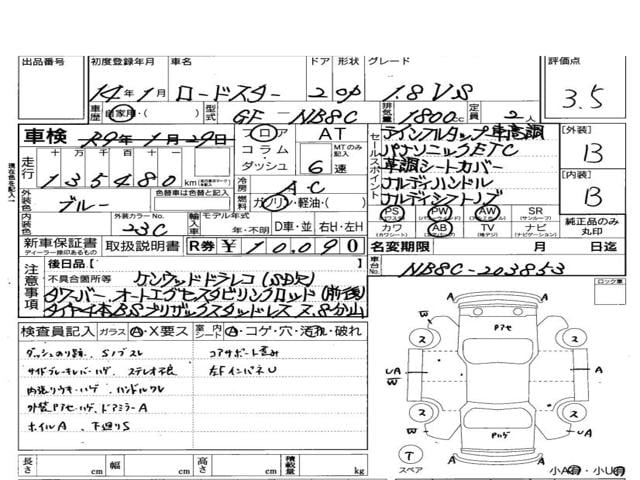 出品番号 初度登録年月 車名 ドア 形状 グレード 評価点
14年1月 ロードスター 2 OP 1.8 VS 3.5
車歴 自家用・( ) 型式 GF-NB8C 排気量 1800cc 定員 2人
車検 R9年1月29日 フロア AT
コラム MTのみ記入
ダッシュ 6速
走行 十万 万 千 百 十 一
135480 km
冷房 AC
外装色 ブルー 色替車は色替と記入 燃料 ガソリン・軽油・( )
内装色 外装カラーNo. 23C 輸入車 モデル年式 年・不明 D車・並 右H・左H
新車保証書 取扱説明書 R券 ¥10,090
ディーラー印のあるもの
セールスポイント
デインフルタップ車高調
パナソニックETC
革調シートカバー
ナルディハンドル
ナルディシフトノブ
PS パワステ PW パワーウィンドウ AW アルミホイール SR (サンルーフ) 純正品のみ丸印
カワ (カワシート) AB (エアバッグ) TV (地デジ) ナビ (ナビゲーション)
【外装】 B
【内装】 B
名変期限 月 日迄
車台No. NB8C-203853
ロック車
注意事項
後日品〔 〕
不具合箇所等 ケンウッドドラレコ(SD欠)
タワーバー、オートエグゼスタビリンクロッド(前後)
タイヤ4本BSブリザックスタッドレス 7.8分山
検査員記入 ガラス A・X要ス 室内シート A・コゲ・穴・汚れ・破れ
ダッシュのり跡、Sノブスレ コアサポート歪み
サイドブレーキレバーハゲ ステレオ不良 左FインパネU
内張りウキ・ハゲ ハンドルスレ
外装Pアセ・ハゲ、ドアミラーA
ホイルA 下廻りS
長さ cm 幅 cm 高さ cm 積載量 kg
A A
W Pアセ
ス ス
UA A
W W
ス ス
Pハゲ
A A UW
T
スペア
小A有・小U有